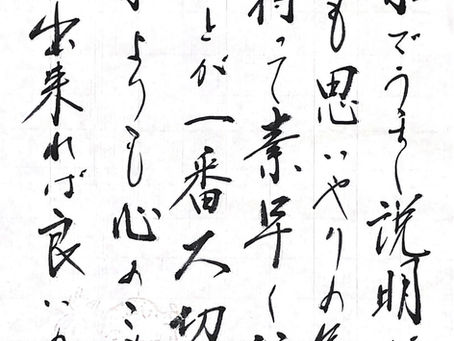 でうまく説明
も思いやりの
持って素早く
とが一番大切
よりも心のこ
出来れば良い